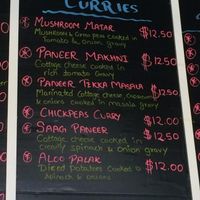 CURRIES
MUSHROOM MATAR $12.50
MUSHROOM & Green peas cooked in
Tomato & onion gravy
PANEER MAKHNI $12.50
Cottage cheese cooked in
rich tomato gravy
PANEER TIKKA MASALA $12.50
Marinated Cottage cheese capsicum
& onions cooked in masala gravy
CHICKPEAS CURRY $12.00
SAAG PANEER $12.50
Cottage cheese cooked in
creamy spinach & onion gravy
ALOO PALAK $12.00
Diced potatoes cooked in
spinach & onions